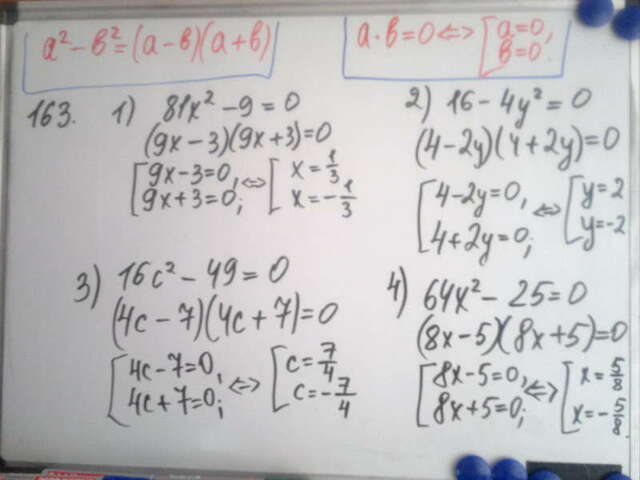 a² - b² = (a - b)(a + b)
a · b = 0 <=> [a = 0,
b = 0.
163. 1) 81x² - 9 = 0
(9x - 3)(9x + 3) = 0
[9x - 3 = 0, <=> [x = 1/3
9x + 3 = 0; x = -1/3
2) 16 - 4y² = 0
(4 - 2y)(4 + 2y) = 0
[4 - 2y = 0, <=> [y = 2
4 + 2y = 0; y = -2
3) 16c² - 49 = 0
(4c - 7)(4c + 7) = 0
[4c - 7 = 0, <=> [c = 7/4
4c + 7 = 0; c = -7/4
4) 64x² - 25 = 0
(8x - 5)(8x + 5) = 0
[8x - 5 = 0, <=> [x = 5/8
8x + 5 = 0; x = -5/8